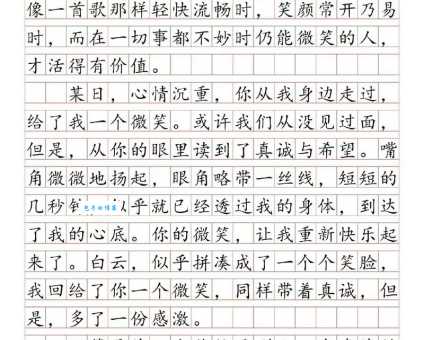 像一首歌那样轻快流畅时，笑颜常开乃易
时，而在一切事都不妙时仍能微笑的人，
才活得有价值。
某日，心情沉重，你从我身边走过，
给了我一个微笑。或许我们从没见过面，
但是，从你的眼里读到了真诚与希望。嘴
角微微地扬起，眼角略带一丝线，短短的
几秒 乎就已经透过我的身体，到达
了我的心底。你的微笑，让我重新快乐起
来了。白云，似乎拼凑成了一个个笑脸，
我回给了你一个微笑，同样带着真诚，但
是，多了一份感激。